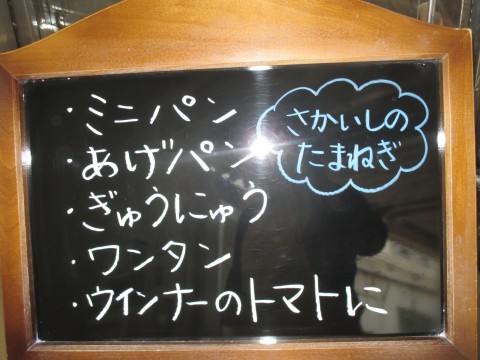 ・ミニパン
・あげパン
・ぎゅうにゅう
・ワンタン
・ウインナーのトマトに
さかいしの
たまねぎ